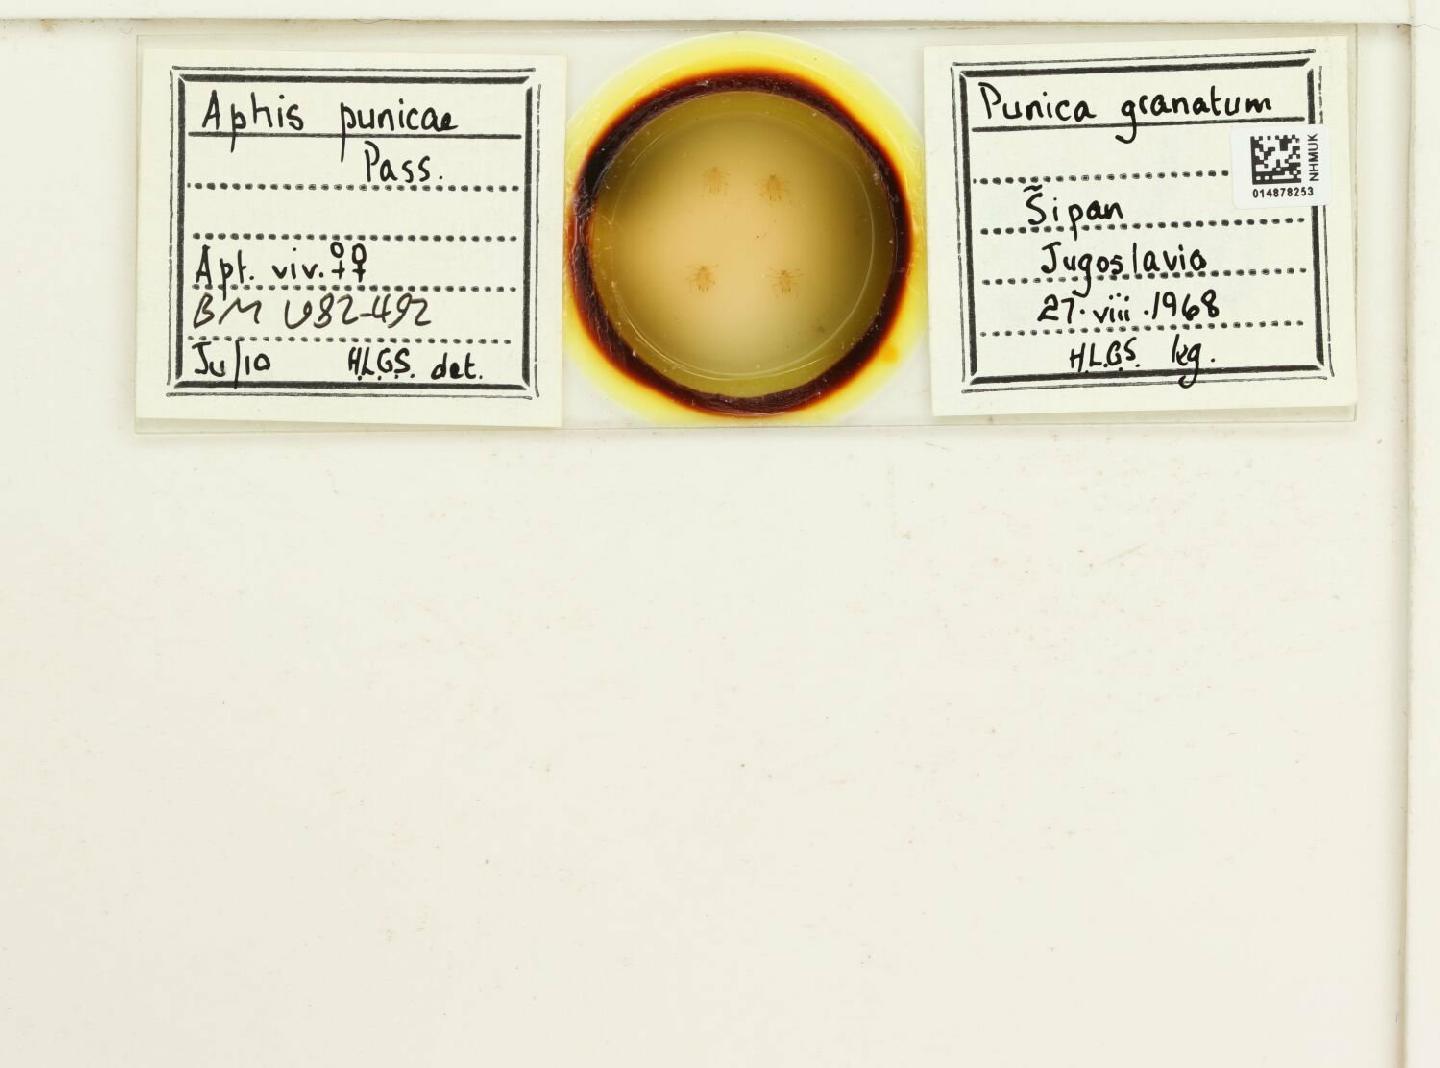 Aphis punicae
Pass.
Apt. viv. ♀♀
BM 1982-492
Ju/10 H.L.G.S. det.
Punica granatum
NHMUK
014878253
Šipan
Jugoslavia
27.viii.1968
H.L.G.S. leg.